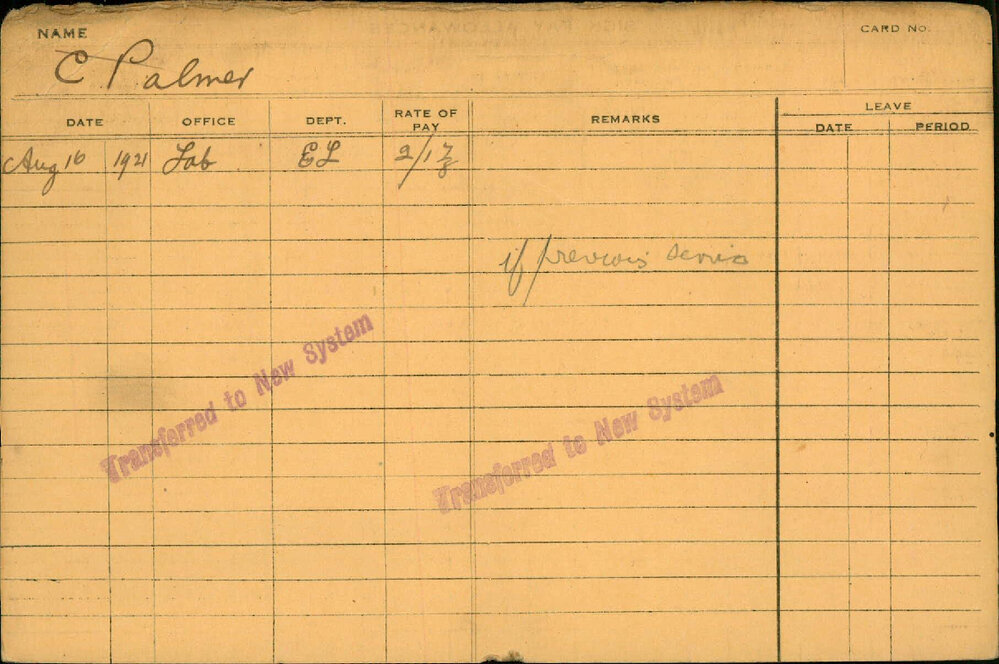 NAME
CARD No.
C Palmer
DATE OFFICE DEPT. RATE OF PAY REMARKS LEAVE
DATE PERIOD
Aug 16 1921 Lab EL 2/1 7/8
if previous
Transferred to New System
Transferred to New System